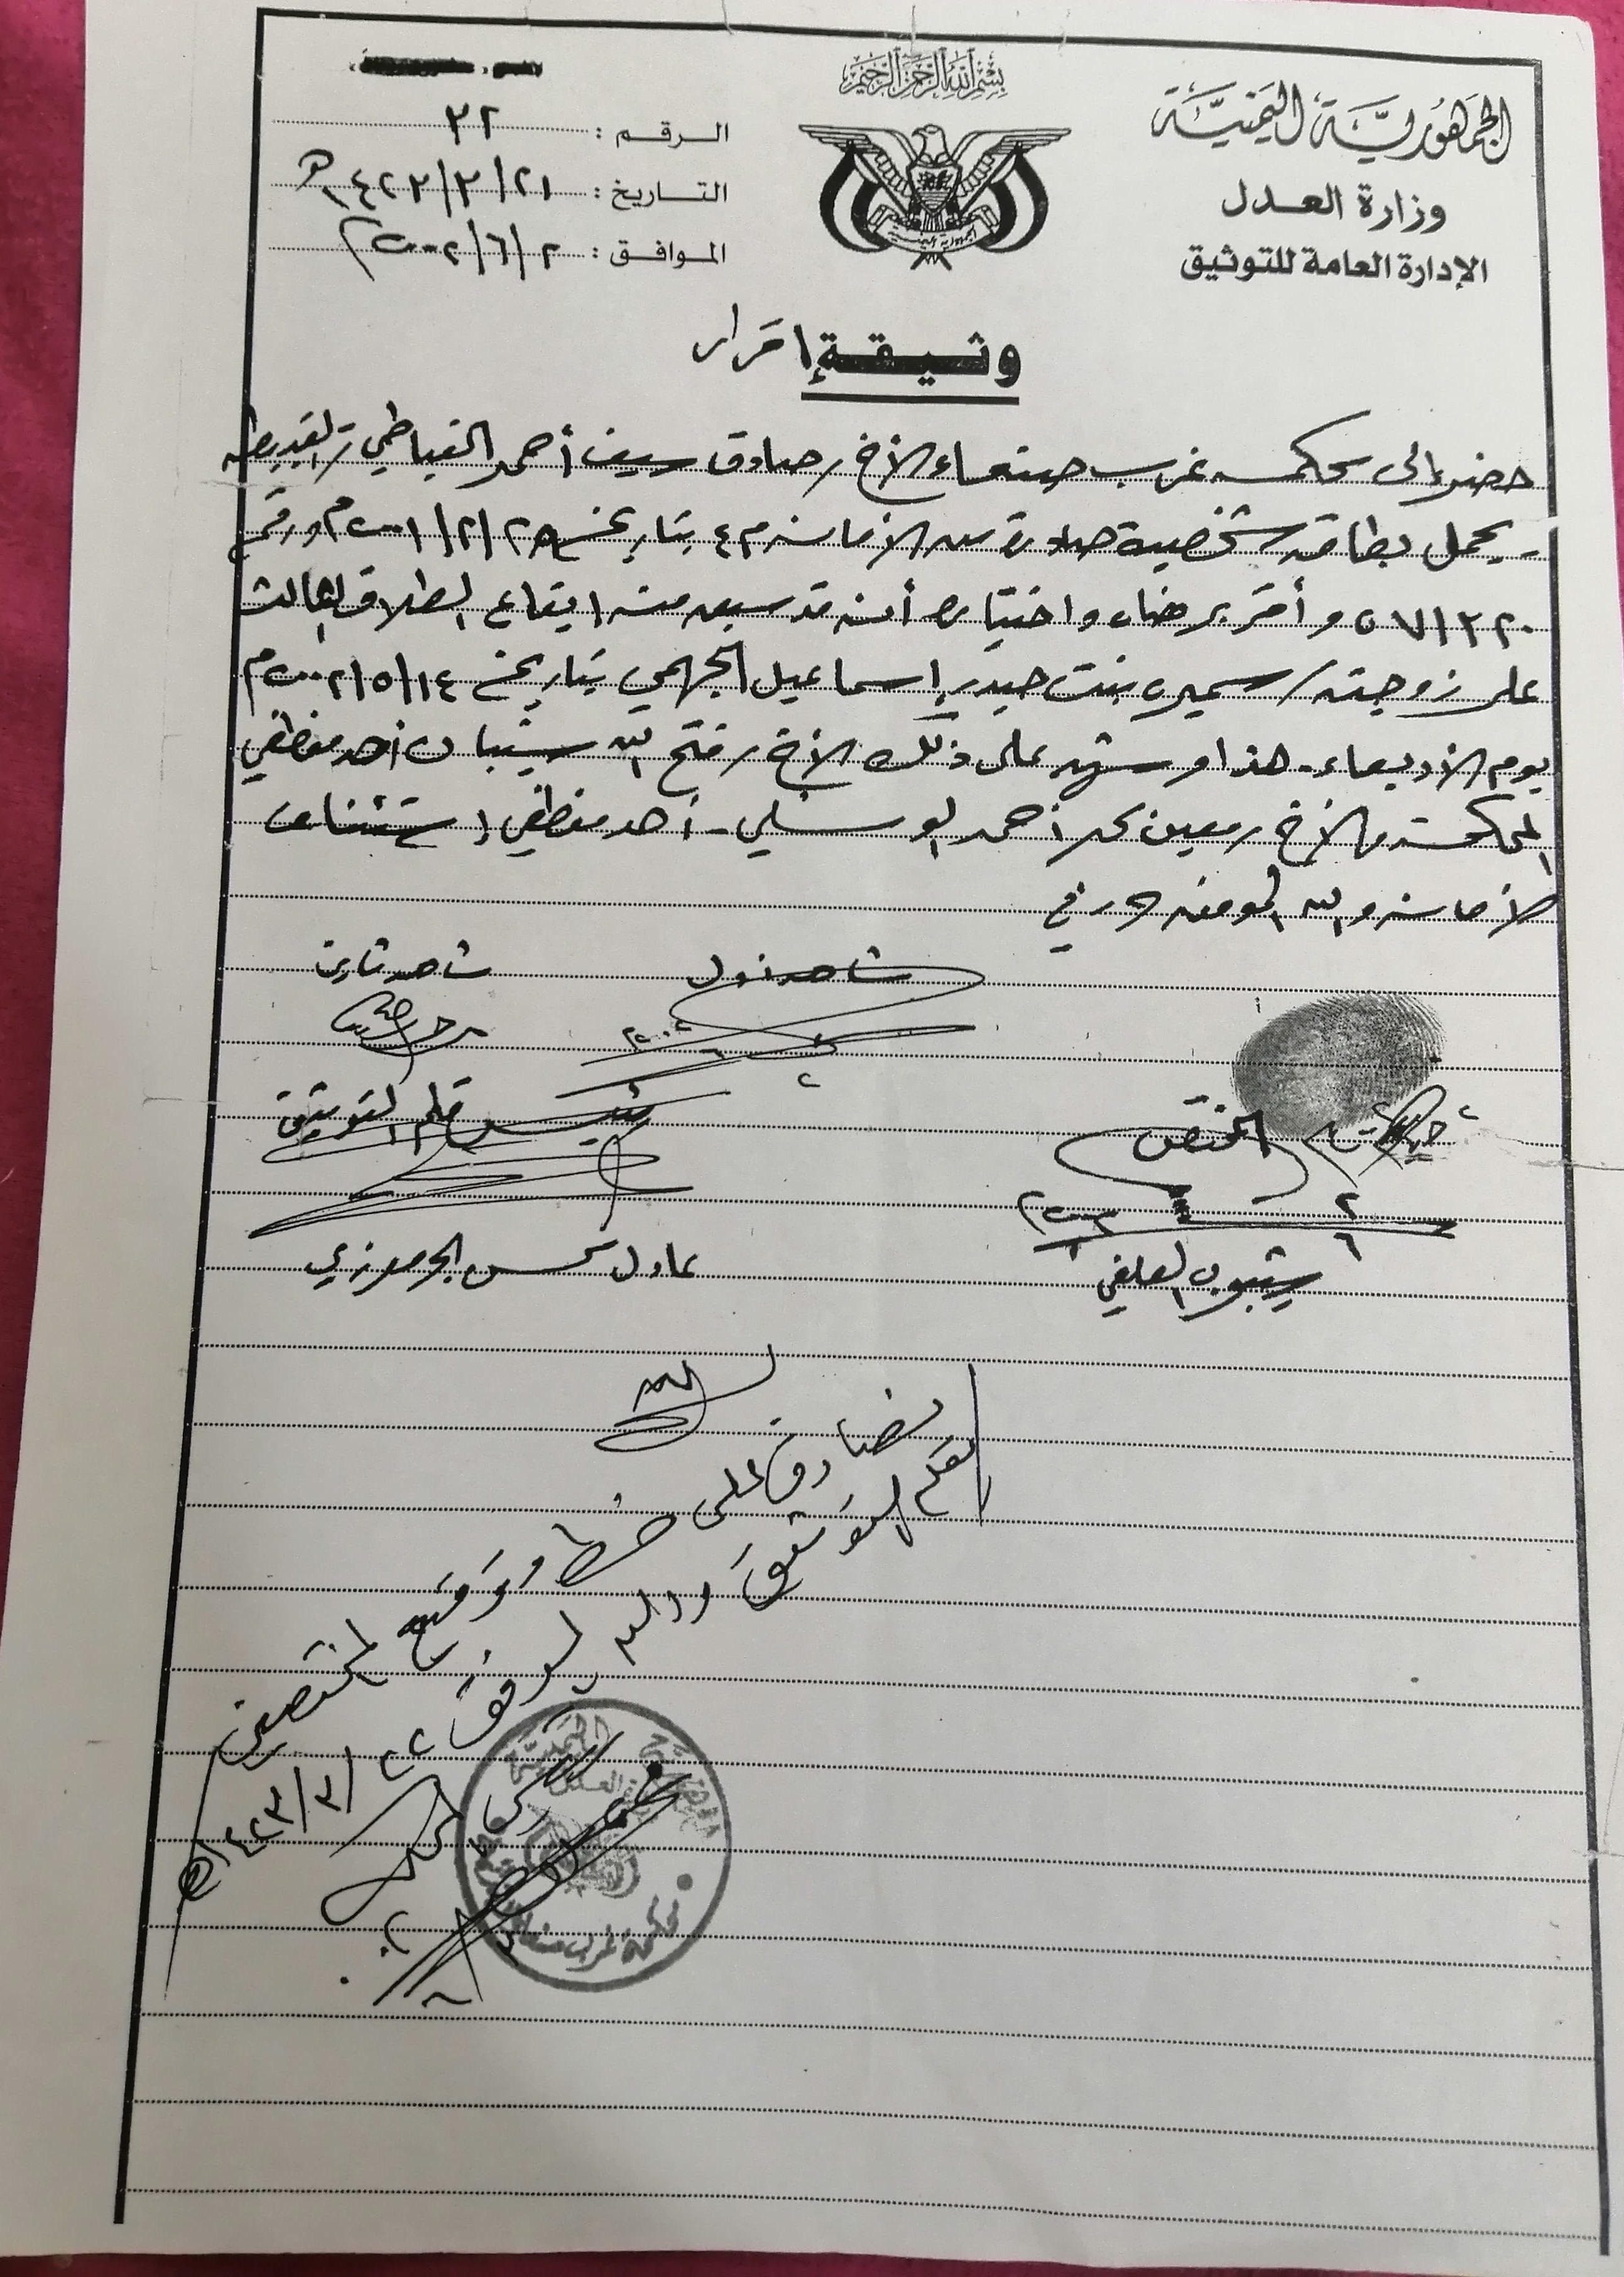 بسم الله الرحمن الرحيم
الجمهورية اليمنية
وزارة العدل
الإدارة العامة للتوثيق
الرقم : ٣٢
التاريخ : ٢١/٣/١٤٢٣هـ
الموافق : ٢/٦/٢٠٠٢م
وثيقة إقرار
حضر إلى محكمة غرب صنعاء الأخ/ صادق سيف أحمد القباطي
يحمل بطاقة شخصية صادرة من الأمانة م٤ بتاريخ ٢٨/٢/٢٠٠١م ورقم
٥٧١٣٢٠ وأقر برضاه واختياره أنه قد سبق منه ايقاع الطلاق الثالث
على زوجته/ سميره بنت حيدر إسماعيل الجهمي بتاريخ ١٤/٥/٢٠٠٢م
يوم الأربعاء - هذا وشهد على ذلك الأخ/ فتح الله شيبان أحد موظفي
المحكمة والأخ/ معين محمد أحمد الوسلي - أحد موظفي استئناف
الأمانة والله الموفق
شاهد أول
شاهد ثاني
المختص
رئيس قلم التوثيق
عادل محسن
نصادق على خط وتوقيع المختصين
بقلم التوثيق والله الموفق
٢٢/٣/١٤٢٣هـ